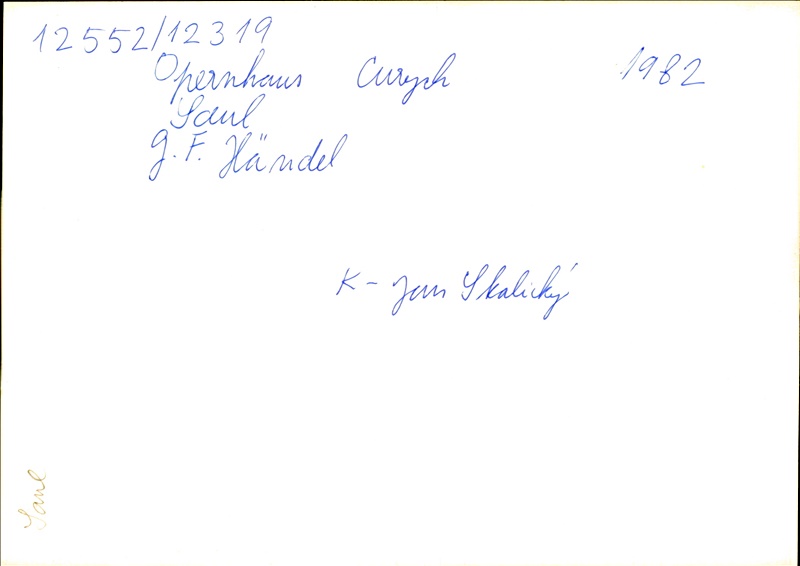 12552/12319
Opernhaus Curych 1982
Saul
G. F. Händel
K - Jan Skalický
Saul